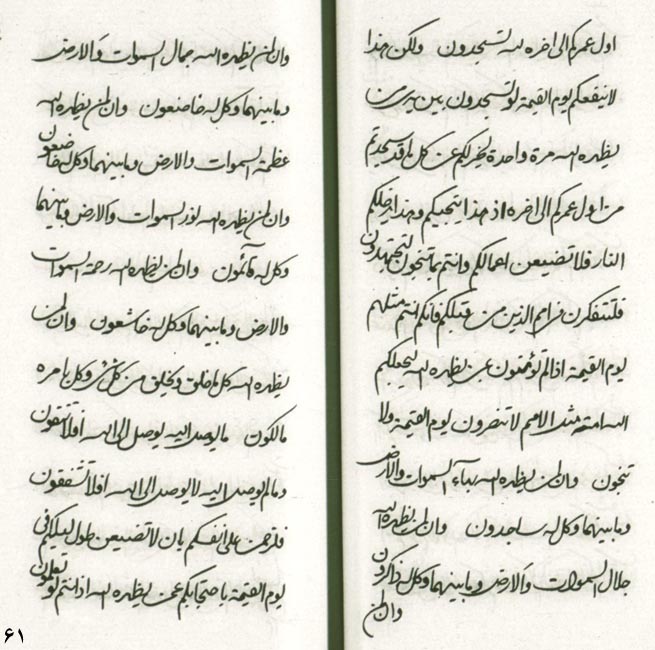 اول عمركم الى اخره لله تسجدون ولكن هذا
لا ينفعكم يوم القيمة لو تسجدون بين يدي من
يظهره الله مرة واحدة لخير لكم عن كل ما قد سجدتم
من اول عمركم الى اخره اذ هذا ينجيكم وهذا يدخلكم
النار فلا تضيعن اعمالكم وانتم بما تنجون لتجتهدون
فلتتفكرن في امم الذين من قبلكم فانكم انتم مثلهم
يوم القيمة اذا لم تؤمنون بمن يظهره الله ليجعلكم
الله امة مثل الامم لا تنصرون يوم القيمة ولا
تنجون وان لمن يظهره الله بهاء السموات والارض
وما بينهما وكل له ساجدون وان لمن يظهره الله
جلال السموات والارض وما بينهما وكل له ذاكرون
وان لمن
وان لمن يظهره الله جمال السموات والارض
وما بينهما وكل له خاضعون وان لمن يظهره الله
عظمة السموات والارض وما بينهما وكل له خاضعون
وان لمن يظهره الله نور السموات والارض وما بينهما
وكل له قائمون وان لمن يظهره الله رحمة السموات
والارض وما بينهما وكل له خاشعون وان لمن
يظهره الله كل ما خلق ويخلق من كل شئ وكل بامره
مالكون ما يوصل اليه يوصل الى الله أفلا تتقون
وما لم يوصل اليه لا يوصل الى الله افلا تشفقون
فلترحمن على أنفسكم بان لا تضيعن طول ليلكم في
يوم القيمة باحتجابكم عمن يظهره الله اذ انتم لو تعلمون
۶۱